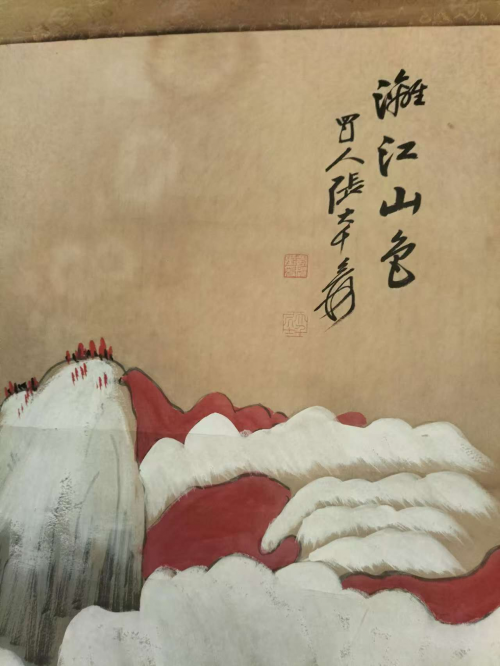 灕江山色
蜀人張大千爰